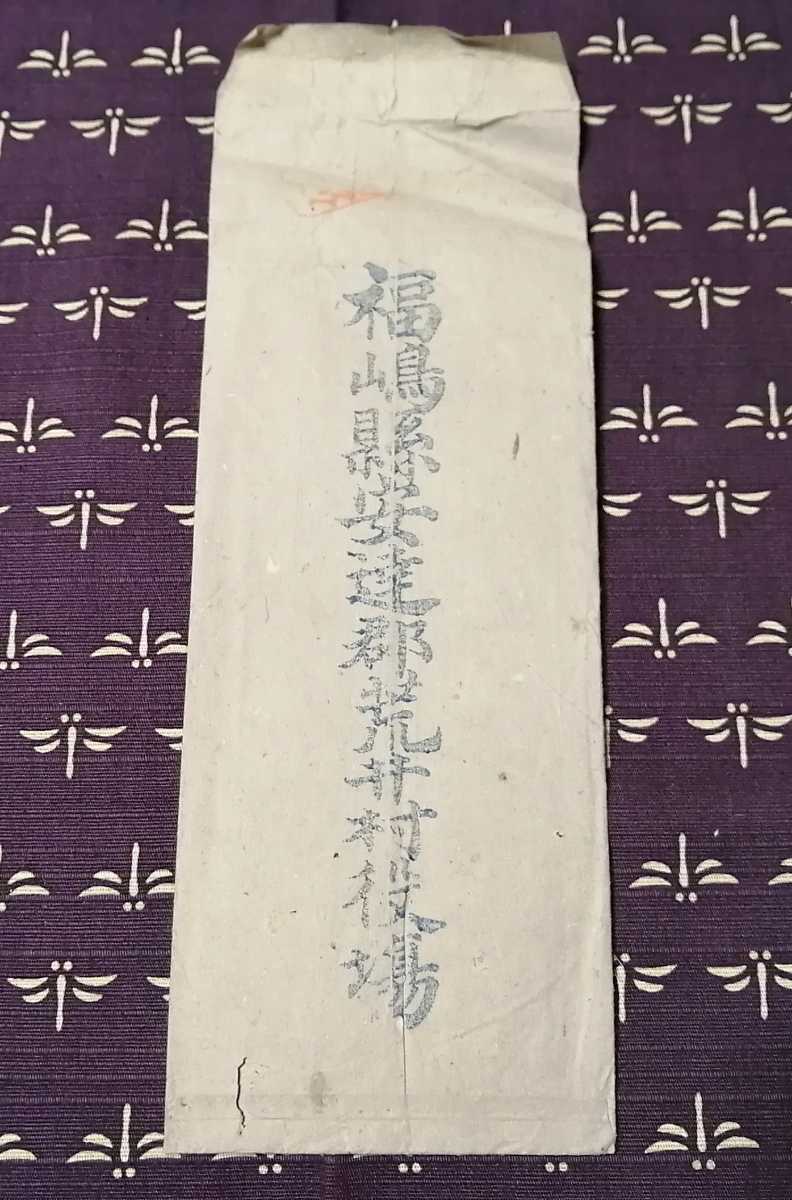 福嶋縣安達郡荒井村役場